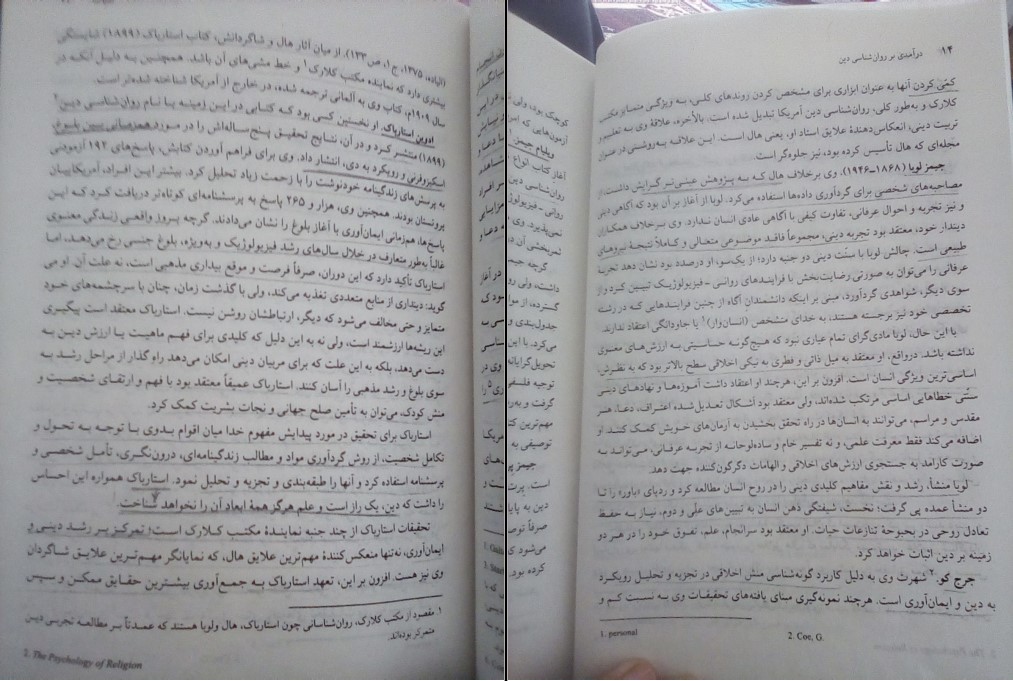 (الیاده، ۱۳۷۵، ج۱، ص ۱۳۳). از میان آثار هال و شاگردانش، کتاب استارباک (۱۸۹۹) شایستگی
بیشتری دارد که نماینده مکتب کلارک۱ و خط مشی‌های آن باشد. همچنین به دلیل آنکه در
سال ۱۹۰۹م، کتاب وی به آلمانی ترجمه شده، در خارج از آمریکا شناخته شده‌تر است.
ادوین استارباک. او نخستین کسی بود که کتابی در این زمینه با نام روان‌شناسی دین۲
(۱۸۹۹) منتشر کرد و در آن، نتایج تحقیق پنج‌ساله‌اش را در مورد همزمانی بین بلوغ
اسکیزوفرنی و رویکرد به دی، انتشار داد. وی برای فراهم آوردن کتابش، پاسخ‌های ۱۹۲ آزمودنی
به پرسش‌های زندگینامه خودنوشت را با زحمت زیاد تحلیل کرد. بیشتر این افراد، آمریکاییان
پروتستان بودند. همچنین وی، هزار و ۲۶۵ پاسخ به پرسشنامه‌ای کوتاه‌تر دریافت کرد که این
پاسخ‌ها، همزمانی ایمان‌آوری با آغاز بلوغ را نشان می‌دادند. گرچه بروز واقعی زندگی معنوی
غالباً به‌طور متعارف در خلال سال‌های رشد فیزیولوژیک و به‌ویژه، بلوغ جنسی رخ می‌دهد، اما
استارباک تأکید دارد که این دوران، صرفاً فرصت و موقع بیداری مذهبی است، نه علت آن. او می
گوید: دینداری از منابع متعددی تغذیه می‌کند، ولی با گذشت زمان، چنان با سرچشمه‌های خود
متمایز و حتی مخالف می‌شود که دیگر، ارتباطشان روشن نیست. استارباک معتقد است پیگیری
این ریشه‌ها ارزشمند است، ولی نه به این دلیل که کلیدی برای فهم ماهیت یا ارزش دین به
دست می‌دهد، بلکه به این علت که برای مربیان دینی امکان می‌دهد راه گذار از مراحل رشد به
سوی بلوغ و رشد مذهبی را آسان کنند. استارباک عمیقاً معتقد بود با فهم و ارتقای شخصیت و
منش کودک، می‌توان به تأمین صلح جهانی و نجات بشریت کمک کرد.
استارباک برای تحقیق در مورد پیدایش مفهوم خدا میان اقوام بدوی با توجه به تحول و
تکامل شخصیت، از روش گردآوری مواد و مطالب زندگینامه‌ای، درون‌نگری، تأمل شخصی و
پرسشنامه استفاده کرد و آنها را طبقه‌بندی و تجزیه و تحلیل نمود. استارباک همواره این احساس
را داشت که دین، یک راز است و علم هرگز همهٔ ابعاد آن را نخواهد شناخت.
تحقیقات استارباک از چند جنبه نمایندهٔ مکتب کلارک است؛ تمرکز بر رشد دینی و
ایمان‌آوری، نه‌تنها منعکس‌کنندهٔ مهم‌ترین علایق هال، که نمایانگر مهم‌ترین علایق شاگردان
وی نیز هست. افزون بر این، تعهد استارباک به جمع‌آوری بیشترین حقایق ممکن و سپس
۱. مقصود از مکتب کلارک، روان‌شناسانی چون استارباک، هال ولوبا هستند که عمدتاً بر مطالعه تجربی دین
متمرکز بوده‌اند.
2. The Psychology of Religion
۱۴ درآمدی بر روان‌شناسی دین
کمّی کردن آنها به عنوان ابزاری برای مشخص کردن روندهای کلی، به ویژگی متمایز مکتب
کلارک و به‌طور کلی، روان‌شناسی دین آمریکا تبدیل شده است. بالأخره، علاقهٔ وی به تعلیم و
تربیت دینی، انعکاس‌دهندهٔ علایق استاد او، یعنی هال است. این علاقه به‌روشنی در عنوان
مجله‌ای که هال تأسیس کرده بود، نیز جلوه‌گر است.
جیمز لوبا (۱۸۶۸-۱۹۴۶). وی برخلاف هال که به پژوهش عینی‌تر گرایش داشت، از
مصاحبه‌های شخصی برای گردآوری داده‌ها استفاده می‌کرد. لوبا از آغاز بر آن بود که آگاهی دینی
و نیز تجربه و احوال عرفانی، تفاوت کیفی با آگاهی عادی انسان ندارد. وی برخلاف همکاران
دیندار خود، معتقد بود تجربه دینی، مجموعاً فاقد موضوعی متعالی و کاملاً نتیجهٔ نیروهای
طبیعی است. چالش لوبا با سنّت دینی دو جنبه دارد؛ از یک‌سو، او درصدد بود نشان دهد تجربهٔ
عرفانی را می‌توان به صورتی رضایت‌بخش با فرایندهای روانی ـ فیزیولوژیک تبیین کرد و از
سوی دیگر، شواهدی گردآورد، مبنی بر اینکه دانشمندان آگاه از چنین فرایندهایی که در رشته
تخصصی خود نیز برجسته هستند، به خدای مشخص (انسان‌وار)۱ یا جاودانگی اعتقاد ندارند.
با این حال، لوبا مادی‌گرای تمام عیاری نبود که هیچ‌گونه حساسیتی به ارزش‌های معنوی
نداشته باشد. درواقع، او معتقد به میل ذاتی و فطری به نیکی اخلاقی سطح بالاتر بود که به نظرش،
اساسی‌ترین ویژگی انسان است. افزون بر این، هرچند او اعتقاد داشت آموزه‌ها و نهادهای دینی
سنّتی خطاهایی اساسی مرتکب شده‌اند، ولی معتقد بود أشکال تعدیل‌شده اعتراف، دعا، هنر
مقدس و مراسم، می‌توانند به انسان‌ها در راه تحقق بخشیدن به آرمان‌های خویش کمک کنند. او
اضافه می‌کند فقط معرفت علمی، و نه تفسیر خام و ساده‌لوحانه از تجربه عرفانی، می‌تواند به
صورت کارآمد به جستجوی ارزش‌های اخلاقی و الهامات دگرگون‌کننده جهت دهد.
لوبا منشأ، رشد و نقش مفاهیم کلیدی دینی را در روح انسان مطالعه کرد و ردپای «باور» را تا
دو منشأ عمده پی گرفت؛ نخست، شیفتگی ذهن انسان به تبیین های علّی و دوم، نیاز به حفظ
تعادل روحی در بحبوحهٔ تنازعات حیات. او معتقد بود سرانجام، علم، تفوق خود را در هر دو
زمینه بر دین اثبات خواهد کرد.
جرج کو.۲ شهرت وی به دلیل کاربرد گونه‌شناسی منش اخلاقی در تجزیه و تحلیل رویکرد
به دین و ایمان‌آوری است. هرچند نمونه‌گیری مبنای یافته‌های تحقیقات وی به نسبت کم و
1. personal
2. Coe, G.